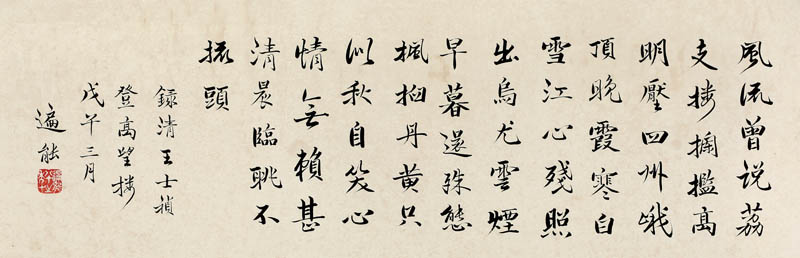 風流曾説荔
支樓欄檻高
明壓四州峨
頂晚霞寒白
雪江心殘照
出烏尤雲煙
早暮還殊態
楓桕丹黄只
似秋自笑心
情無賴甚
清晨臨眺不
梳頭
錄清王士禎
登高望樓
戊午三月
遍能